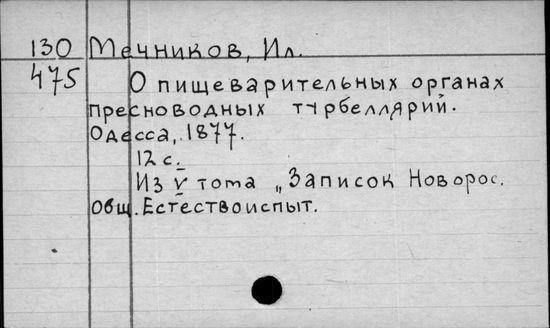 130 Мечников, Ил.
475 О пищеварительных органах
пресноводных турбеллярий.
Одесса, 1877.
12 с.
Из V тома „Записок Новорос.
Общ. Естествоиспыт.